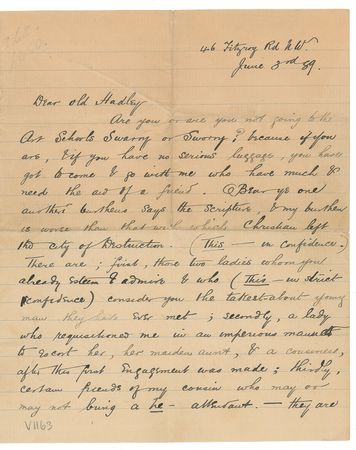 46 Fitzroy Rd N.W.
June 3rd 89.
Dear old Hadley
Are you or are you not going to the
Art Schools Swarry or Sworry? because if you
are, & if you have no serious luggage, you have
got to come & go with me who have much &
need the aid of a friend. Bear ye one
another's burthens says the Scripture, & my burthen
is worse than that with which Christian left
the city of Destruction. (This — in confidence.)
There are; first, those two ladies whom you
already esteem & admire & who (This — in strict
confidence) consider you the talkest-about young
man they have ever met; secondly, a lady
who requisitioned me in an imperious manner
to escort her, her maiden aunt, & a
after this first Engagement was made; thirdly,
certain friends of my cousin who may or
may not bring a he - attendant. — they are
V1163